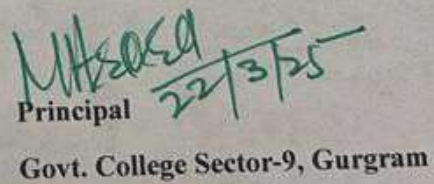 22/3/25
Principal
Govt. College Sector-9, Gurgram